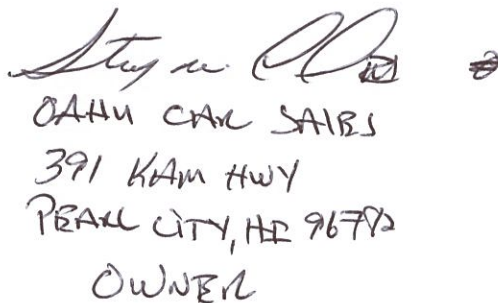 OAHU CAR SALES
391 KAM HWY
PEARL CITY, HI 96782
OWNER